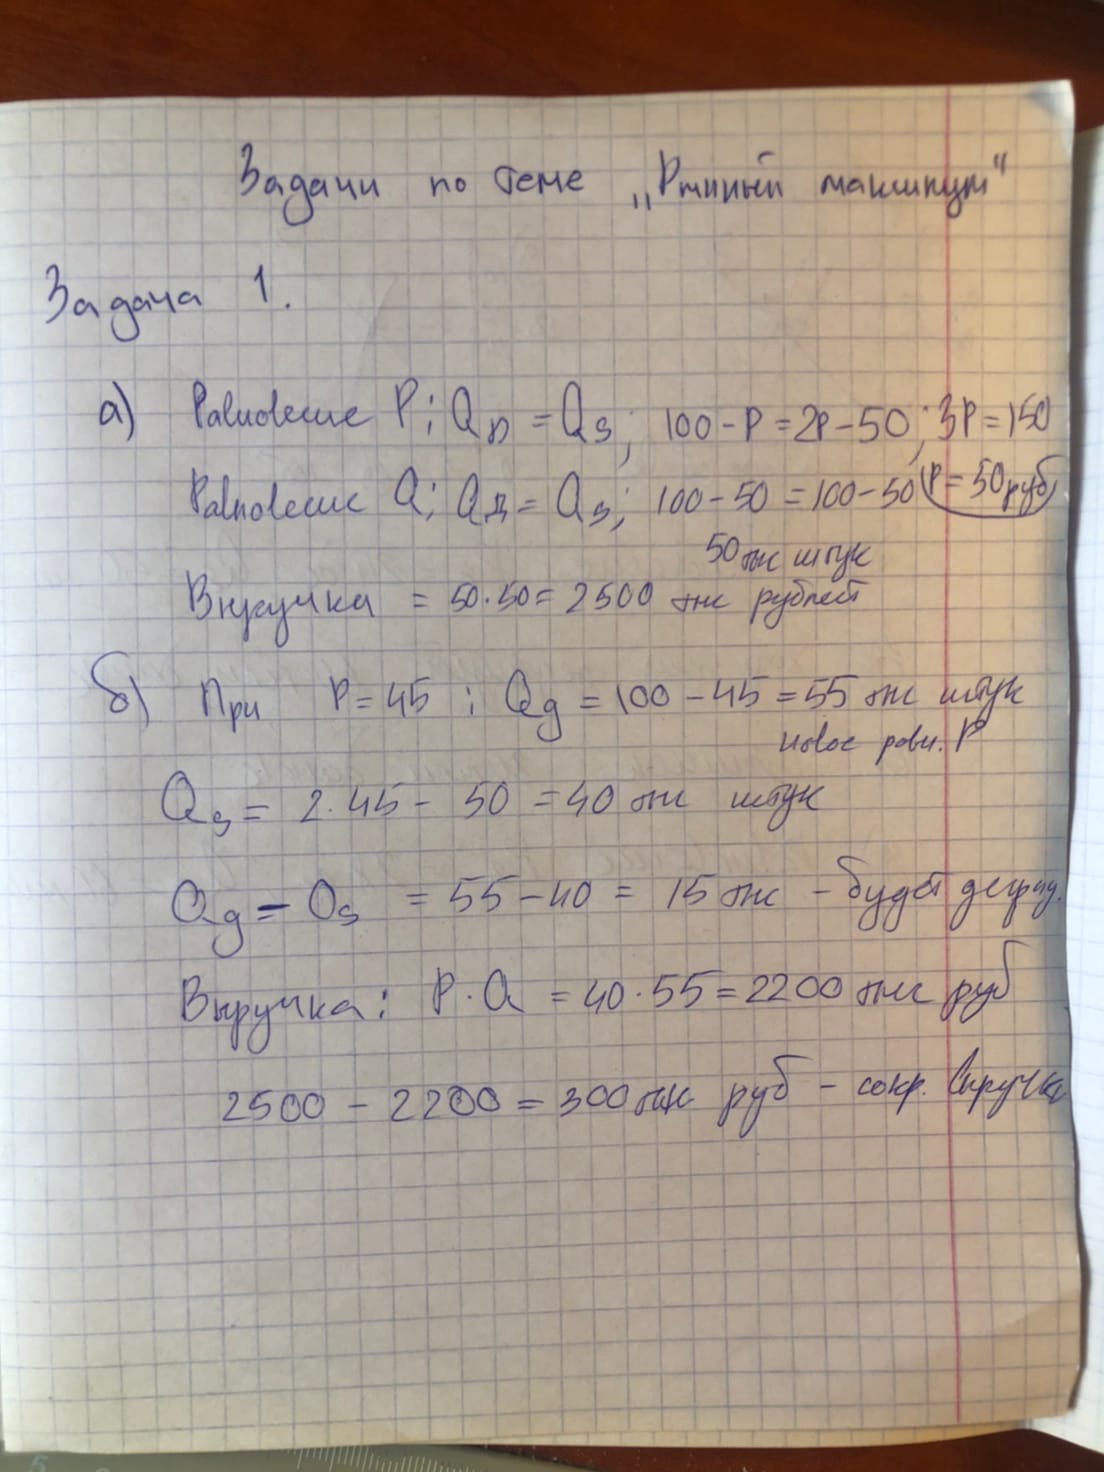 Задачи по теме „Рынный макшинум“
Задача 1.
а) Равновесие P; QD = QS; 100-P=2P-50; 3P=150
Равновесие Q; QД = QS; 100-50 = 100-50 P=50руб
50 тыс штук
Выручка = 50·50= 2500 тыс рублей
б) При P=45 ; Qд = 100-45=55 тыс штук
новое равн. P
QS = 2·45 - 50 = 40 тыс штук
Qд - QS = 55-40 = 15 тыс - будет
Выручка: P·Q = 40·55=2200 тыс руб
2500 - 2200 = 300 тыс руб - сокр. выручка